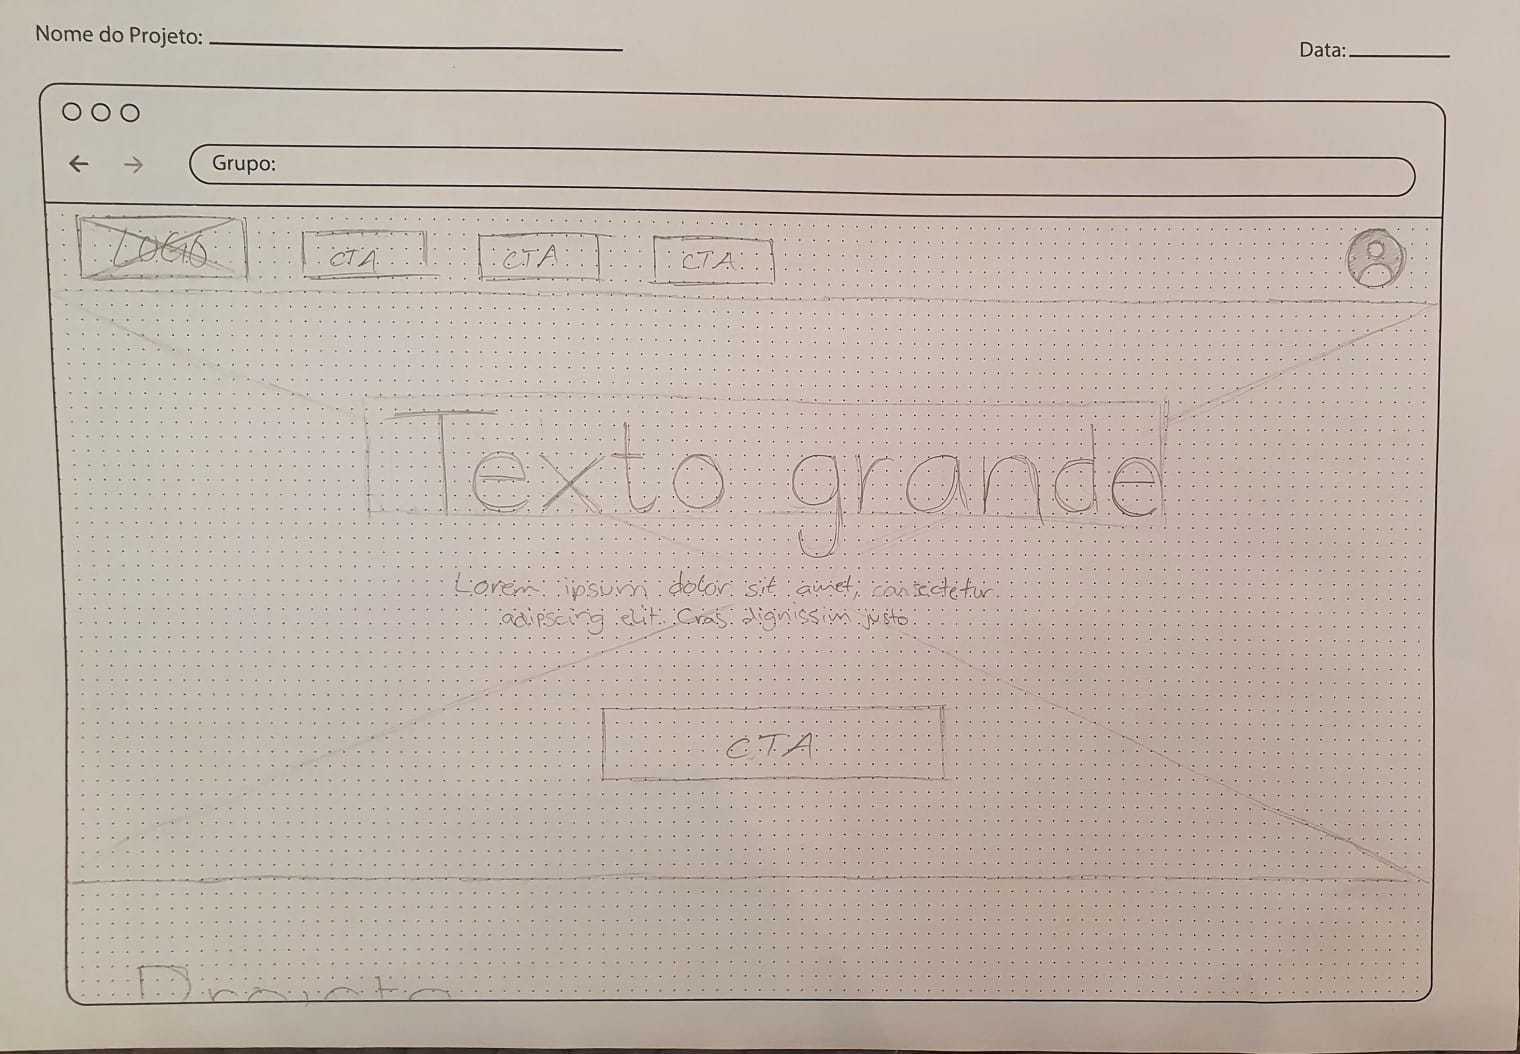 Nome do Projeto:
Data:
Grupo:
LOGO CTA CTA CTA
Texto grande
Lorem ipsum dolor sit amet, consectetur
adipscing elit. Cras dignissim justo
CTA